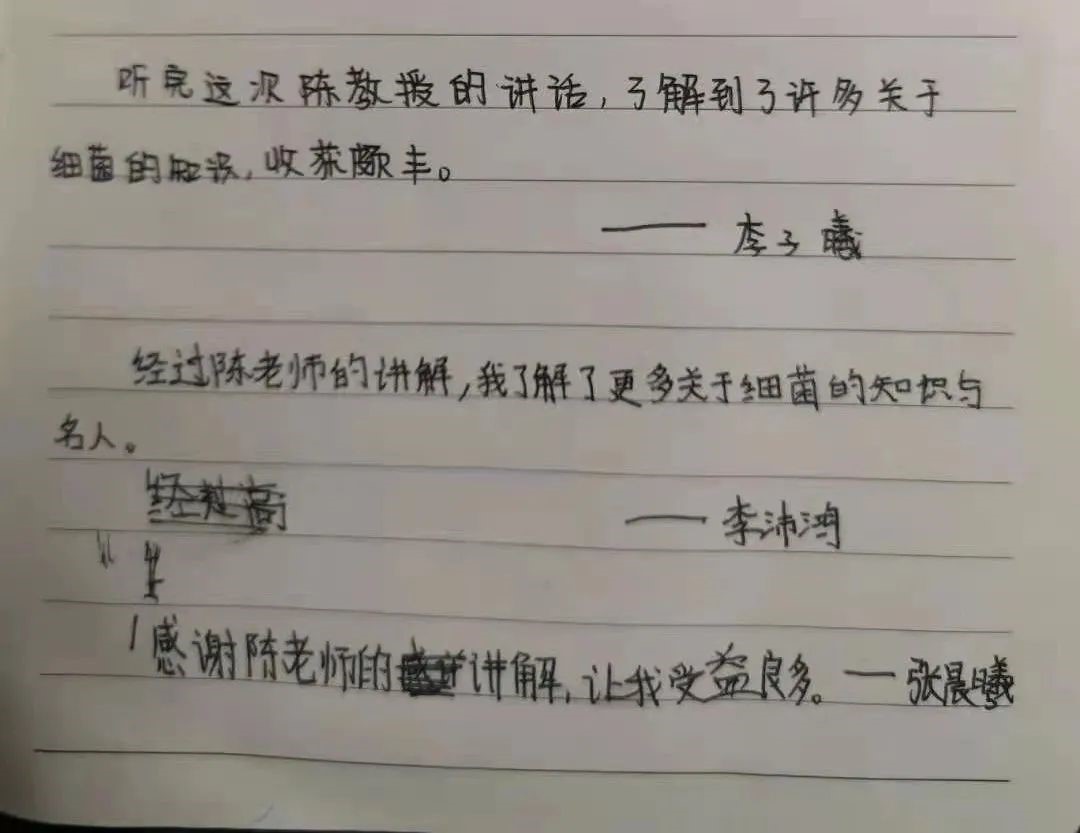 听完这次陈教授的讲话,了解到了许多关于
细菌的知识,收获颇丰。
—— 李子曦
经过陈老师的讲解,我了解了更多关于细菌的知识与
名人。
—— 李沛鸿
感谢陈老师的讲解,让我受益良多。—— 张晨曦